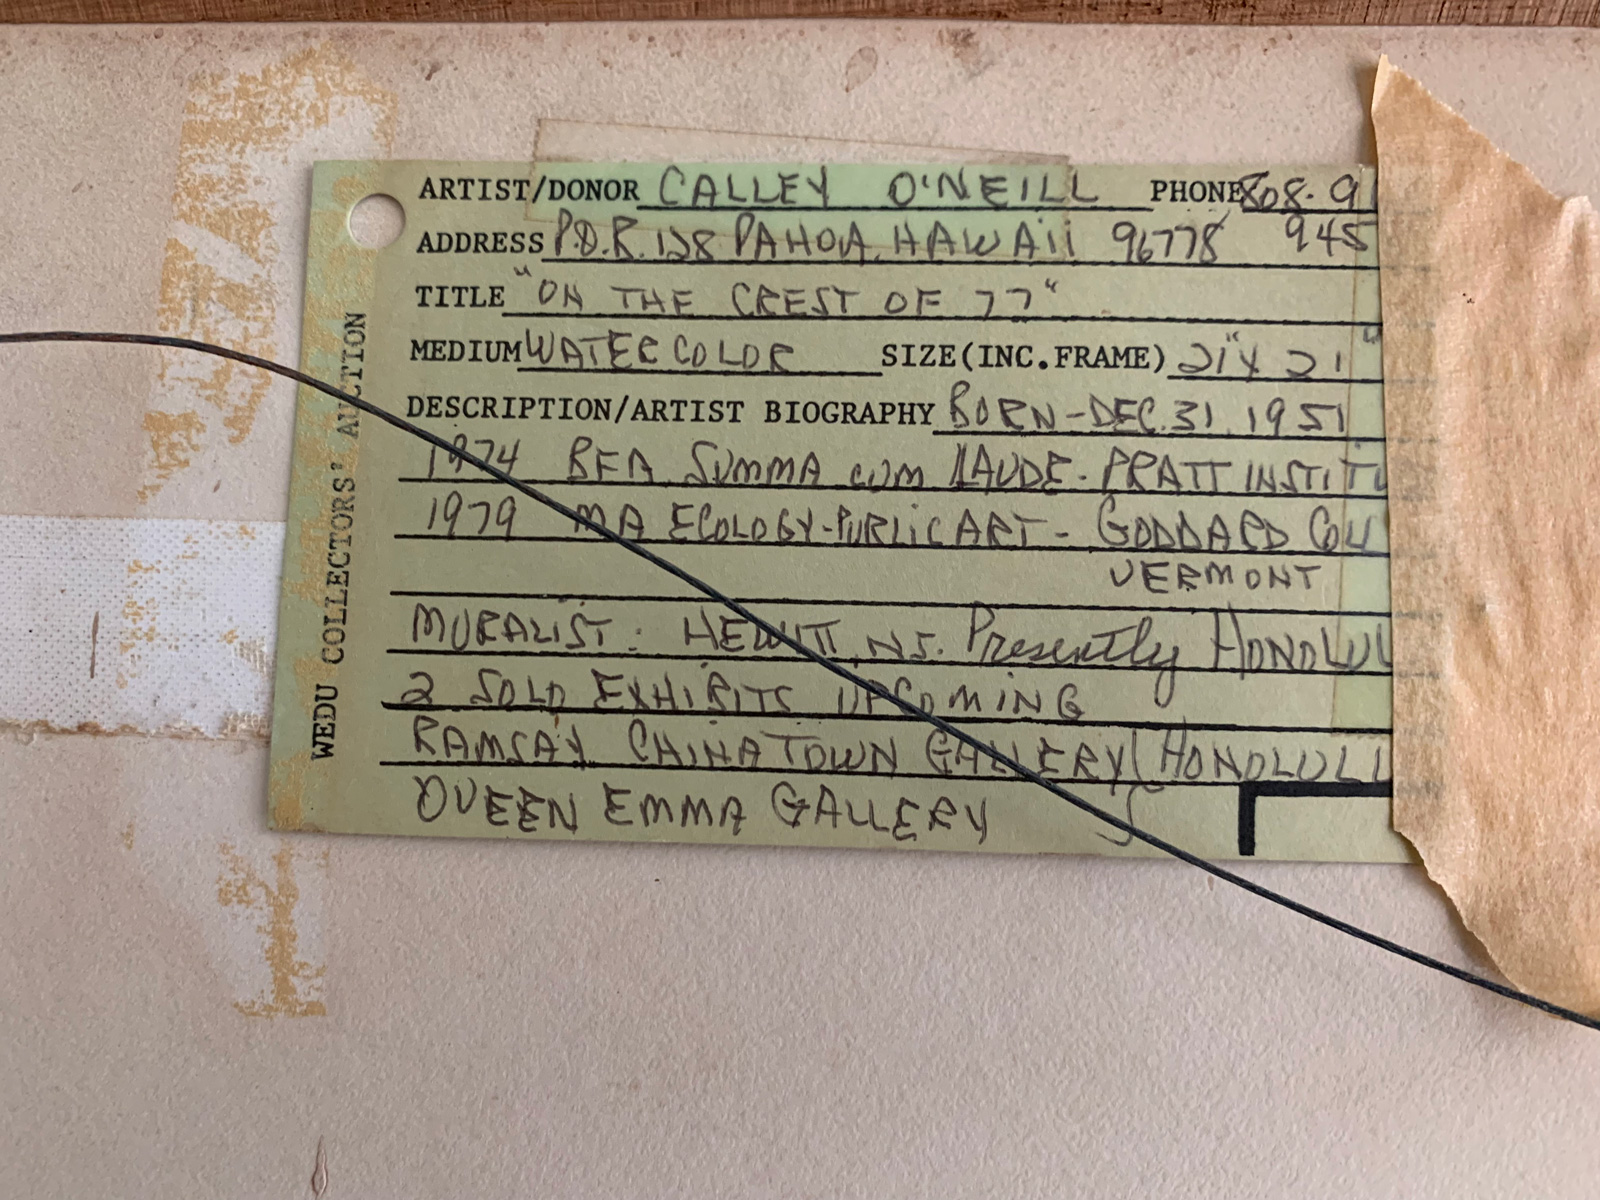 ARTIST/DONOR CALLEY O'NEILL PHONE 808-91
ADDRESS P.O.B. 128 PAHOA, HAWAII 96778 945
TITLE "ON THE CREST OF 77"
MEDIUM WATERCOLOR SIZE(INC.FRAME) 21" X 21"
DESCRIPTION/ARTIST BIOGRAPHY BORN-DEC.31 1951
1974 BFA SUMMA CUM LAUDE - PRATT INSTITU
1979 MA ECOLOGY-PUBLIC ART - GODDARD
VERMONT
MURALIST: HEWITT, NJ. Presently HONOLUL
2 SOLO EXHIBITS UPCOMING
RAMSAY CHINATOWN GALLERY HONOLUL
QUEEN EMMA GALLERY
WEDU COLLECTORS' AUCTION